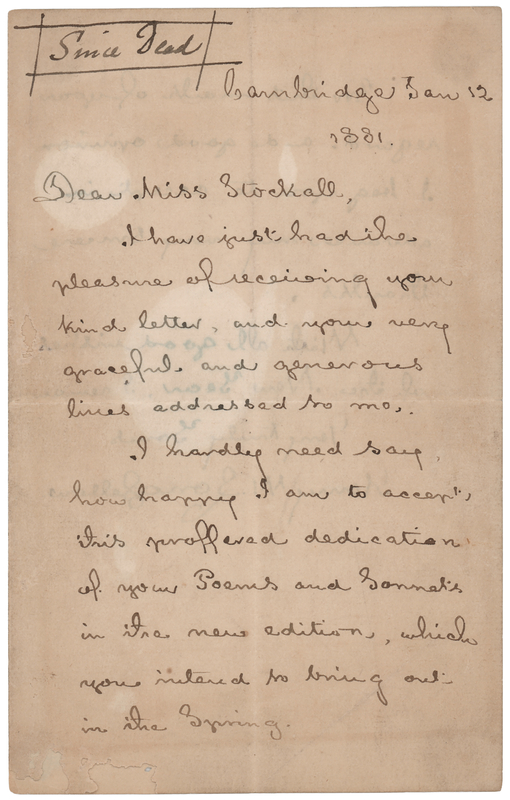 Since Dead
Cambridge Jan 12
1881.
Dear Miss Stockall,
I have just had the
pleasure of receiving your
kind letter, and your very
graceful and generous
lines addressed to me.
I hardly need say,
how happy I am to accept
this proffered dedication
of your Poems and Sonnets
in the new edition, which
you intend to bring out
in the Spring.